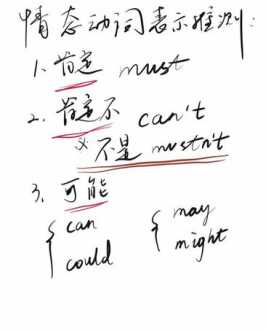 情态动词表示推测:
1. 肯定 must
2. 肯定不 can't
* 不是 mustn't
3. 可能
{ can { may
could might